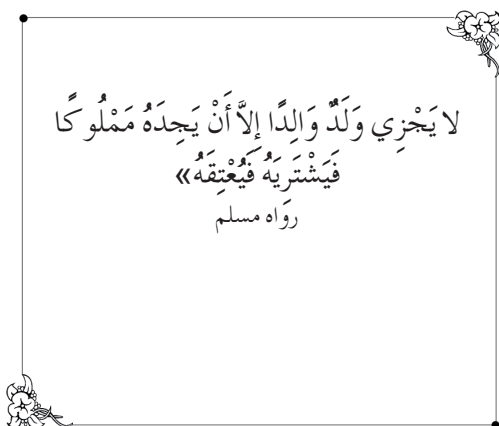 لا يَجْزِي وَلَدٌ وَالِدًا إِلاَّ أَنْ يَجِدَهُ مَمْلُوكًا
فَيَشْتَرِيَهُ فَيُعْتِقَهُ»
رواه مسلم